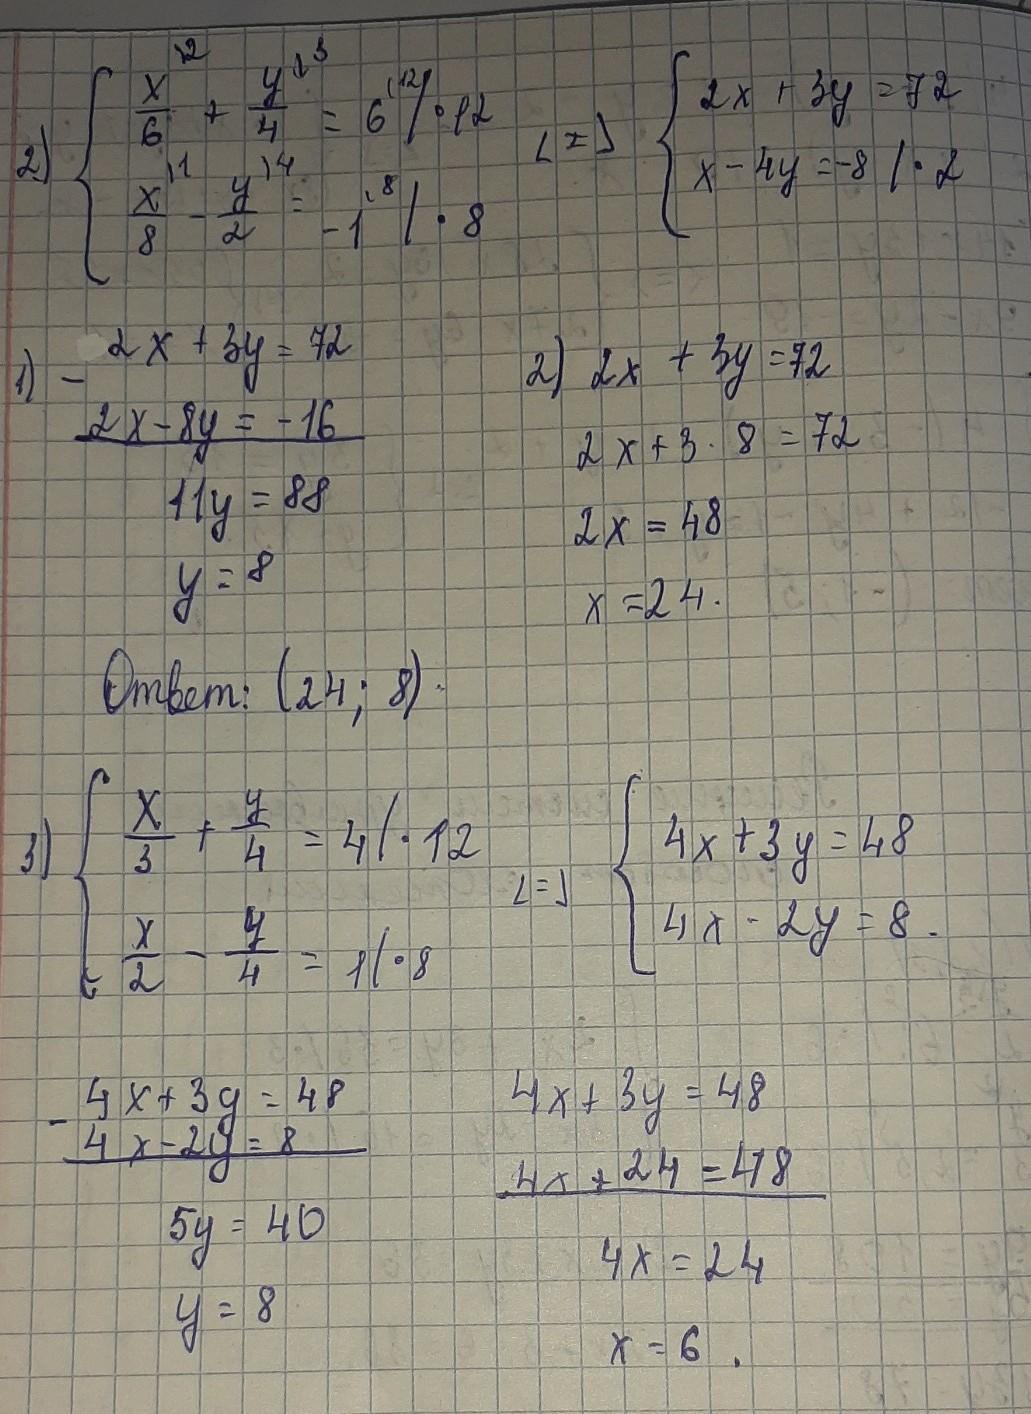 2) { x/6 \2 + y/4 \3 = 6 \12 / · 12 <=> { 2x + 3y = 72
x/8 \1 - y/2 \4 = -1 \8 / · 8 x - 4y = -8 / · 2
1) - 2x + 3y = 72
2x - 8y = -16
11y = 88
y = 8
2) 2x + 3y = 72
2x + 3 · 8 = 72
2x = 48
x = 24.
Ответ: (24; 8).
3) { x/3 + y/4 = 4 / · 12 <=> { 4x + 3y = 48
x/2 - y/4 = 1 / · 8 4x - 2y = 8.
- 4x + 3y = 48
4x - 2y = 8
5y = 40
y = 8
4x + 3y = 48
4x + 24 = 48
4x = 24
x = 6.